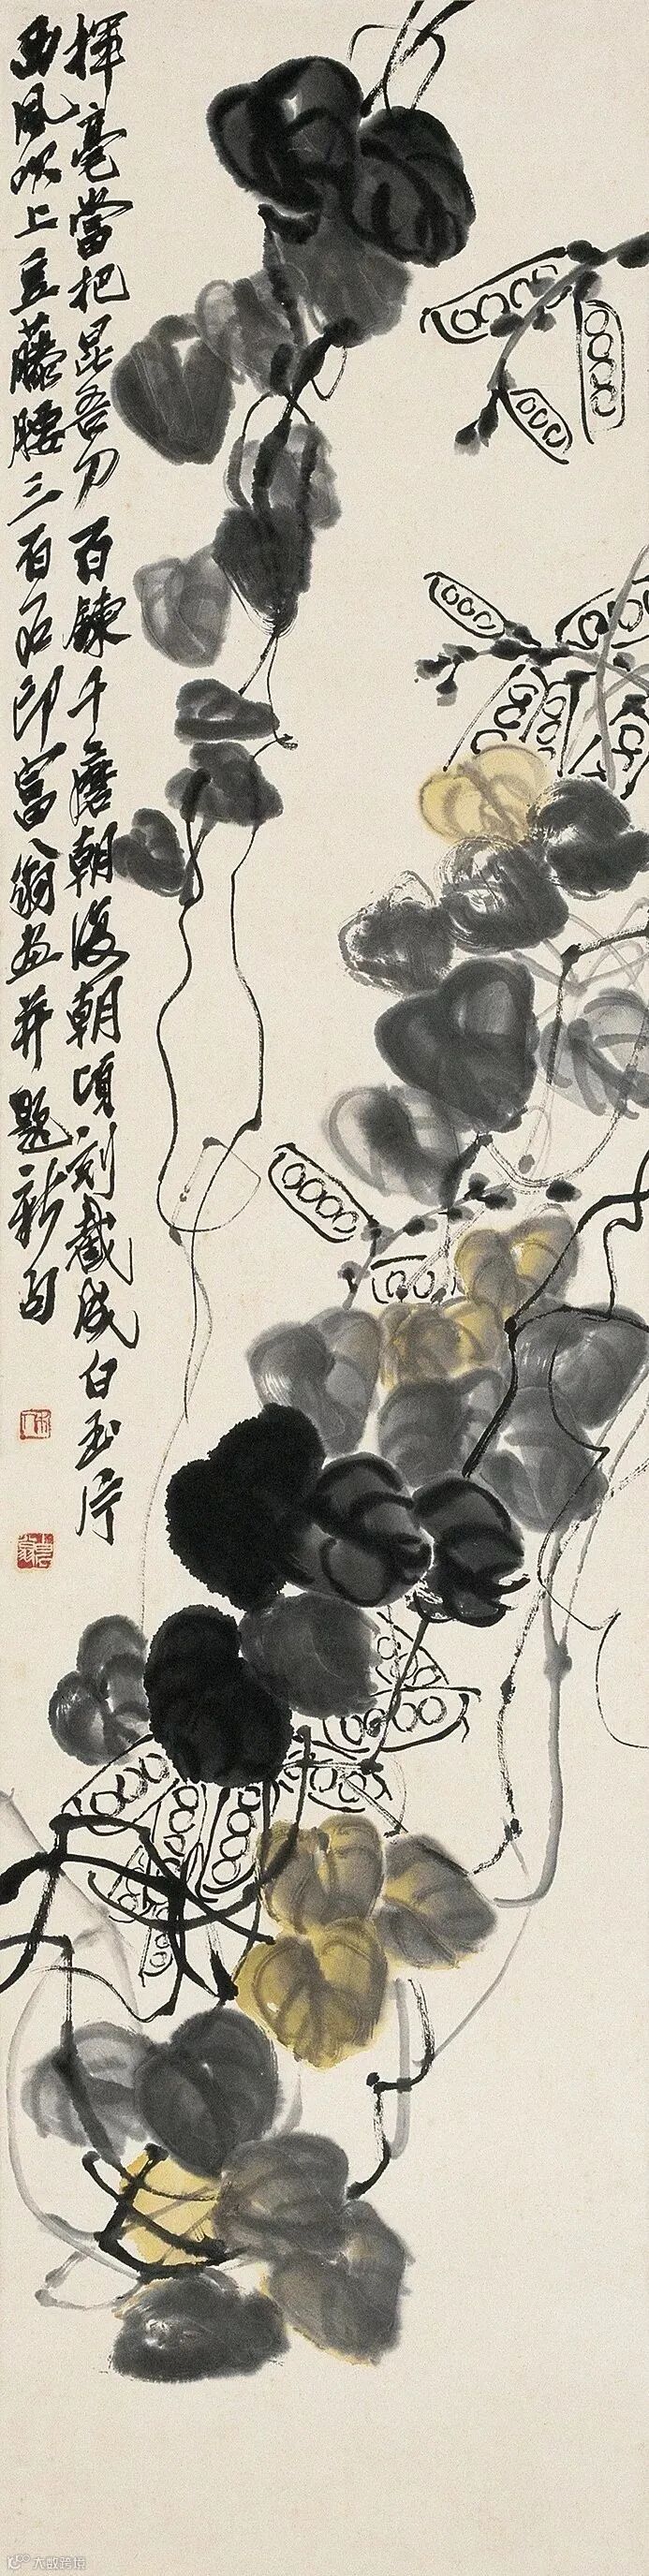 揮毫當把昆吾刀百鍊千磨朝復朝頃刻截成白玉片
西風吹上豆藤腰三百石印富翁畫并題新句
木人
老萍
大数跨境